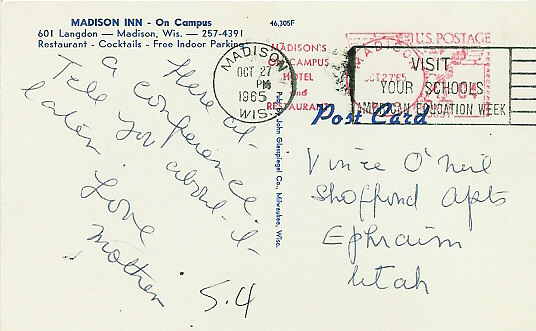 MADISON INN - On Campus
601 Langdon — Madison, Wis. — 257-4391
Restaurant - Cocktails - Free Indoor Parking
46,305F
Here at
a conference.
Tell you about it
later. Love
Mother
S.4
Pub. by John Glaspiegel Co., Milwaukee, Wisc.
MADISON'S
ON CAMPUS
HOTEL
and
RESTAURANT
MADISON
OCT 27
PM
1965
WIS.
U.S. POSTAGE
MADISON
OCT 27'65
VISIT
YOUR SCHOOLS
AMERICAN EDUCATION WEEK
Post Card
Vince O'Neil
Shofford Apts
Ephraim
Utah